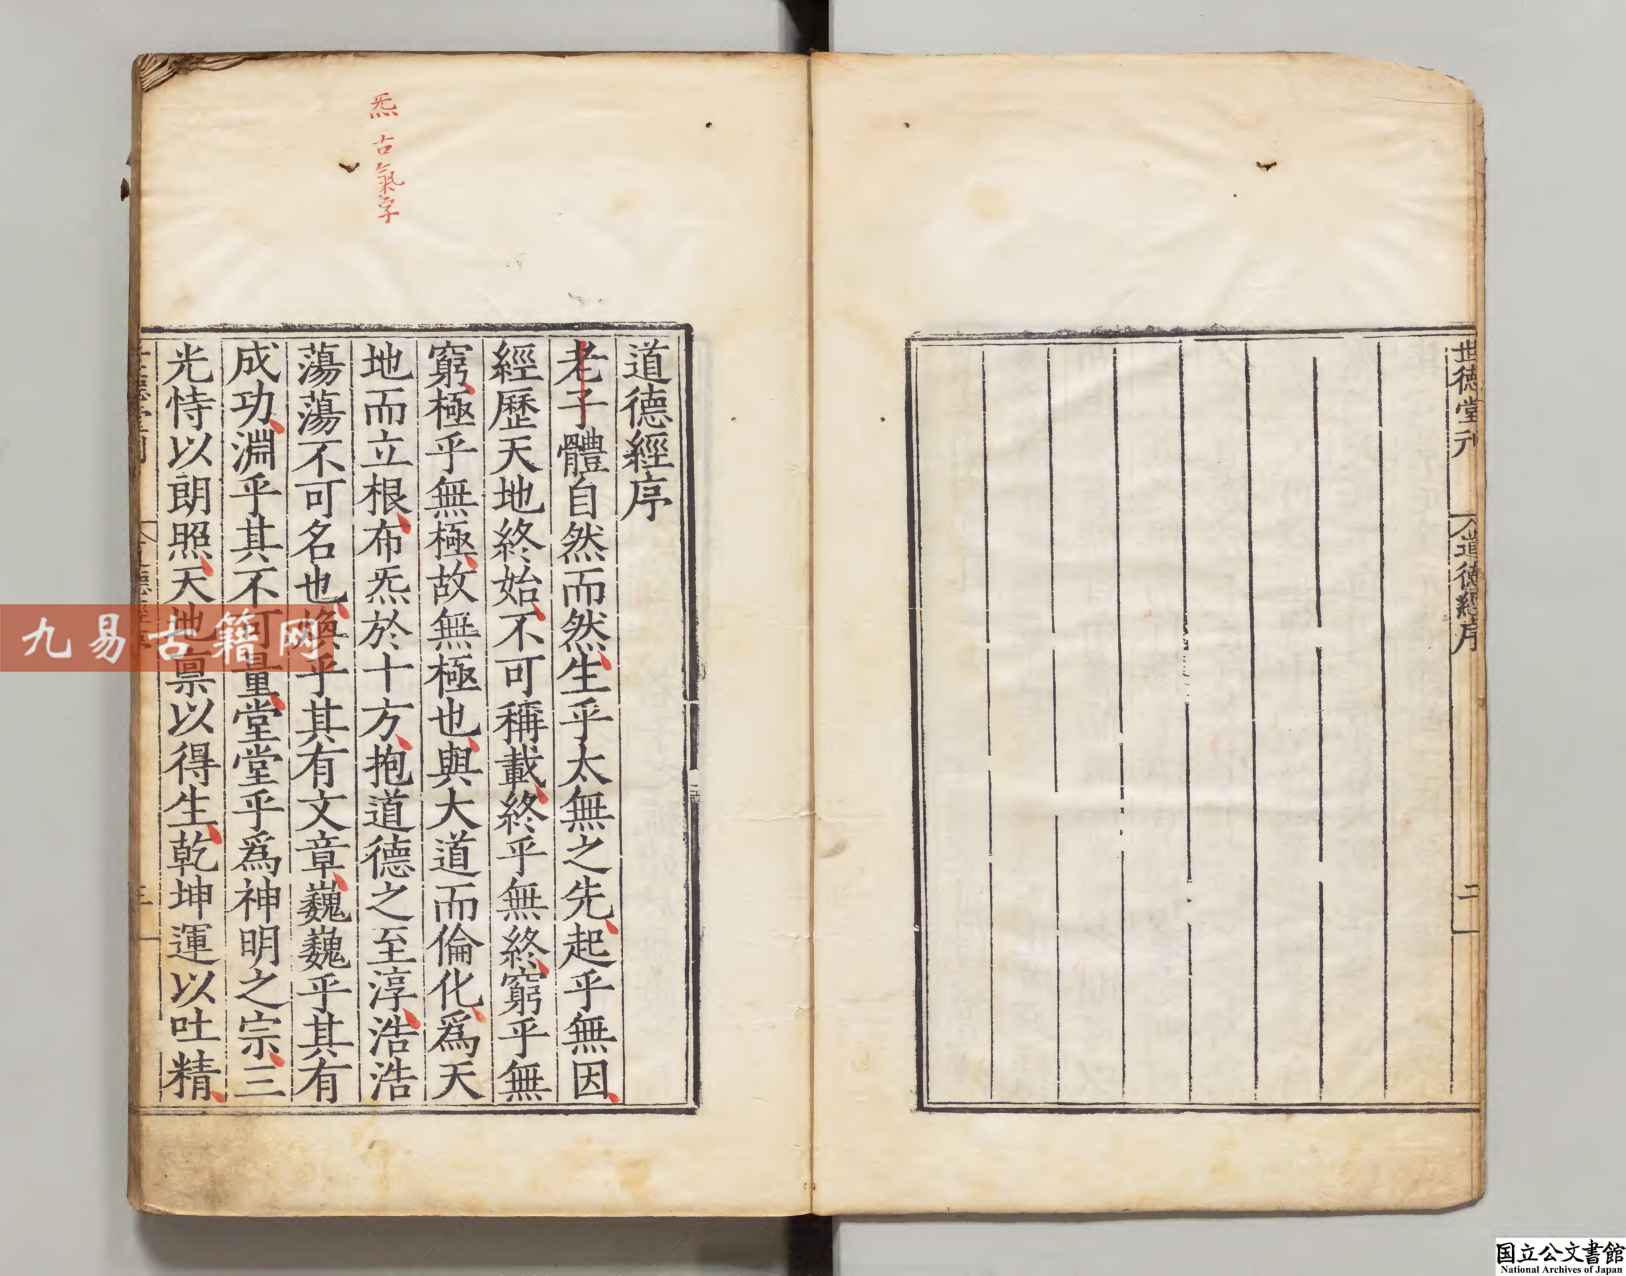 世德堂刊
道德經序
二
炁古氣字
道德經序
老子體自然而然生乎太無之先起乎無因
經歷天地終始不可稱載終乎無終窮乎無
窮極乎無極故無極也與大道而倫化爲天
地而立根布炁於十方抱道德之至淳浩浩
蕩蕩不可名也煥乎其有文章巍巍乎其有
成功淵乎其不可量堂堂乎爲神明之宗三
光恃以朗照天地稟以得生乾坤運以吐精
九易古籍网
国立公文書館
National Archives of Japan